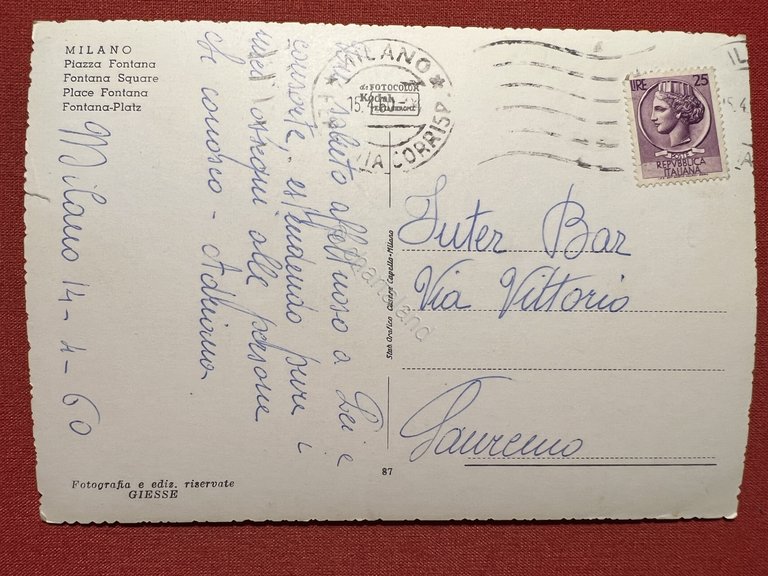 MILANO
Piazza Fontana
Fontana Square
Place Fontana
Fontana-Platz
Milano 14-4-60
Un saluto affettuoso a Lei e
consorte, estendendo pure i
miei ossequi alle persone
che conosco - Adriana
MILANO
da FOTOCOLOR
Kodak
EKTACHROME
15.4.60
CORRISP
LIRE 25
REPVBBLICA
ITALIANA
Inter Bar
Via Vittorio
Sanremo
Stab. Grafico Cesare Capello-Milano
87
Fotografia e ediz. riservate
GIESSE